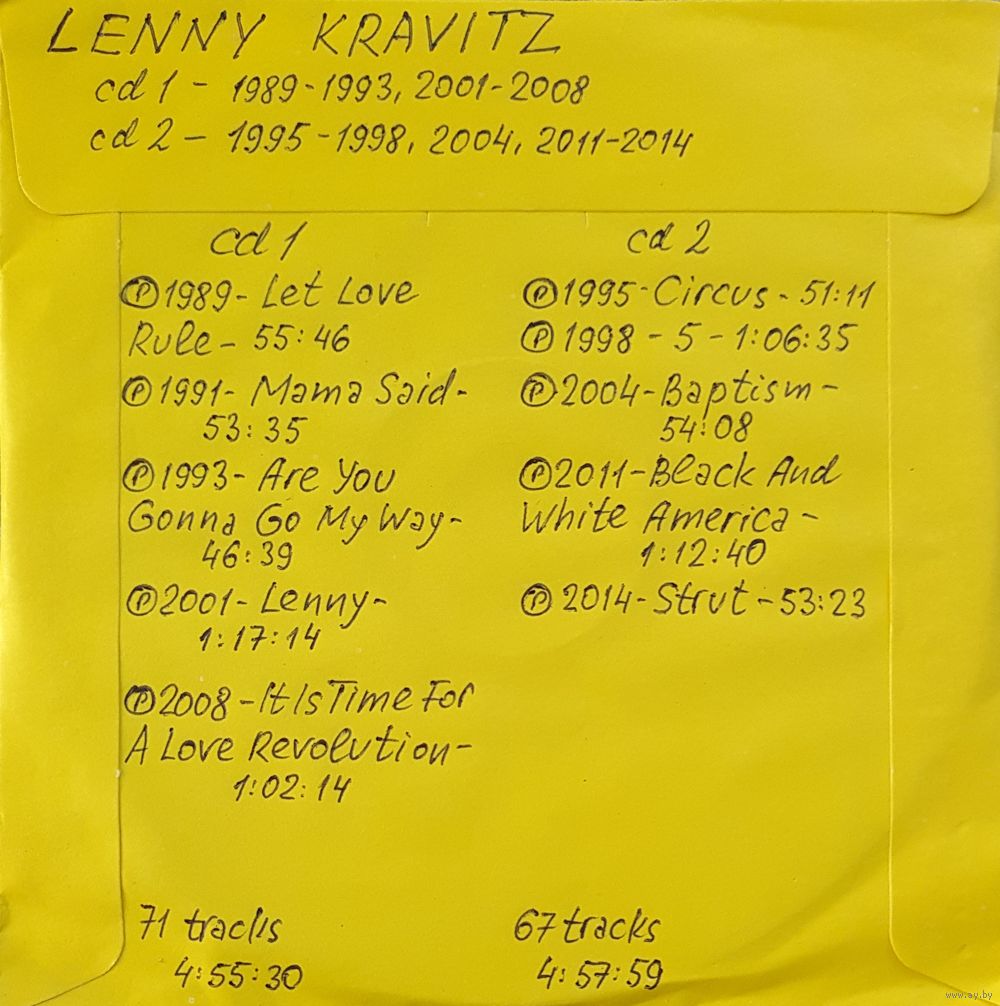 LENNY KRAVITZ
cd 1 - 1989-1993, 2001-2008
cd 2 - 1995-1998, 2004, 2011-2014
cd 1
Ⓟ1989- Let Love
Rule- 55:46
Ⓟ1991- Mama Said-
53:35
Ⓟ1993- Are You
Gonna Go My Way-
46:39
Ⓟ2001- Lenny-
1:17:14
Ⓟ2008-It Is Time For
A Love Revolution-
1:02:14
71 tracks
4:55:30
cd 2
Ⓟ1995-Circus- 51:11
Ⓟ1998 - 5 - 1:06:35
Ⓟ2004-Baptism-
54:08
Ⓟ2011-Black And
White America-
1:12:40
Ⓟ 2014-Strut-53:23
67 tracks
4:57:59
www.ay.by